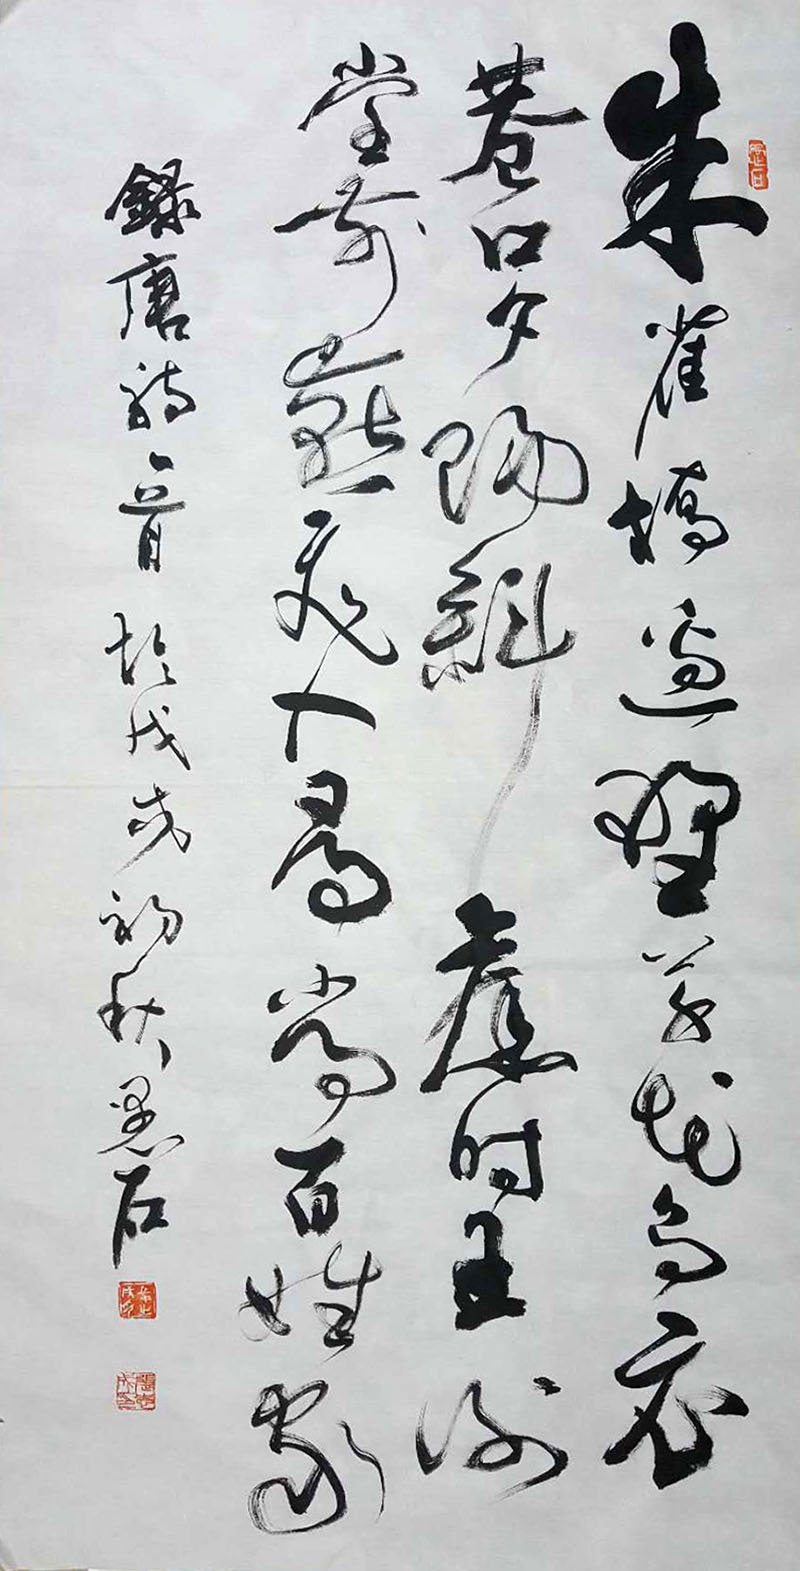 朱雀橋邊野草花烏衣
巷口夕陽斜舊時王謝
堂前燕飛入尋常百姓家
錄唐詩一首於戊戌初秋石